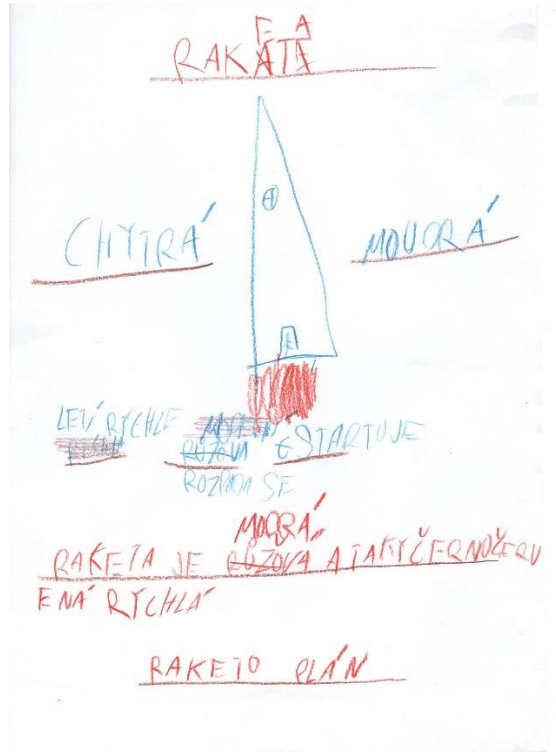 E A
RAKATA
CHYTRÁ
MOUDRÁ
LEVÍ RYCHLE
RŮŽOVA STARTUJE
SE
MODRÁ
RAKETA JE RŮŽOVA A TAKY ČERNOČERV
ENÁ RYCHLÁ
RAKETO PLÁN